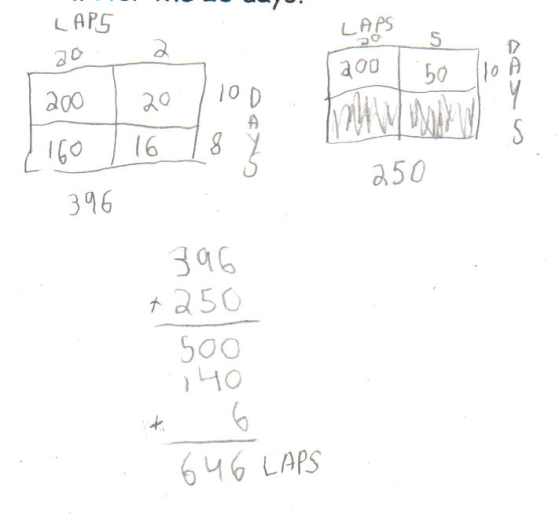 days.
LAPS
20 2
200 20 10
160 16 8
DAYS
396
LAPS
20 5
200 50 10
DAYS
250
396
+ 250
500
140
+ 6
646 LAPS